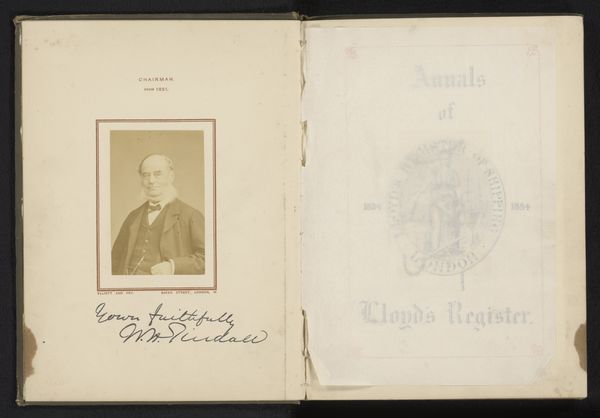 CHAIRMAN
FROM 1881.
ELLIOTT AND FRY, BAKER STREET, LONDON, W.
Yours faithfully
W. H. Tindall
Annals
of
LLOYD'S REGISTER OF SHIPPING
1834 1884
LONDON
Lloyd's Register.